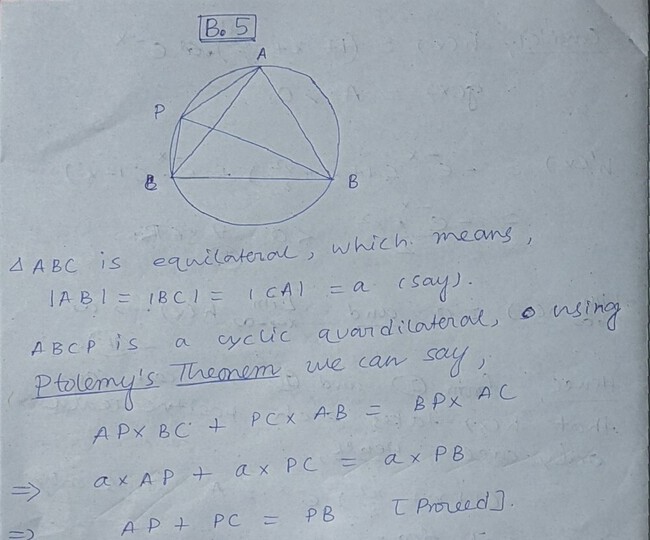 B. 5
A
P
B
∆ ABC is equilateral, which means,
|AB| = |BC| = |CA| = a (say).
ABCP is a cyclic quardilateral, using
Ptolemy's Theorem we can say,
AP x BC + PC x AB = BP x AC
⇒ a x AP + a x PC = a x PB
⇒ AP + PC = PB [Proved].